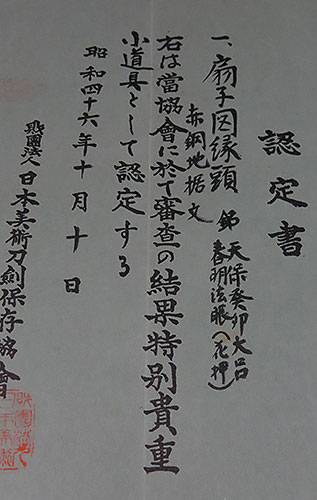 認定書
一、扇子図縁頭 銘 天保癸卯大呂
春明法眼(花押)
赤銅地据文
右は當協會に於て審査の結果特別貴重
小道具として認定する
昭和四十六年十月十日
財團法人日本美術刀劍保存協會